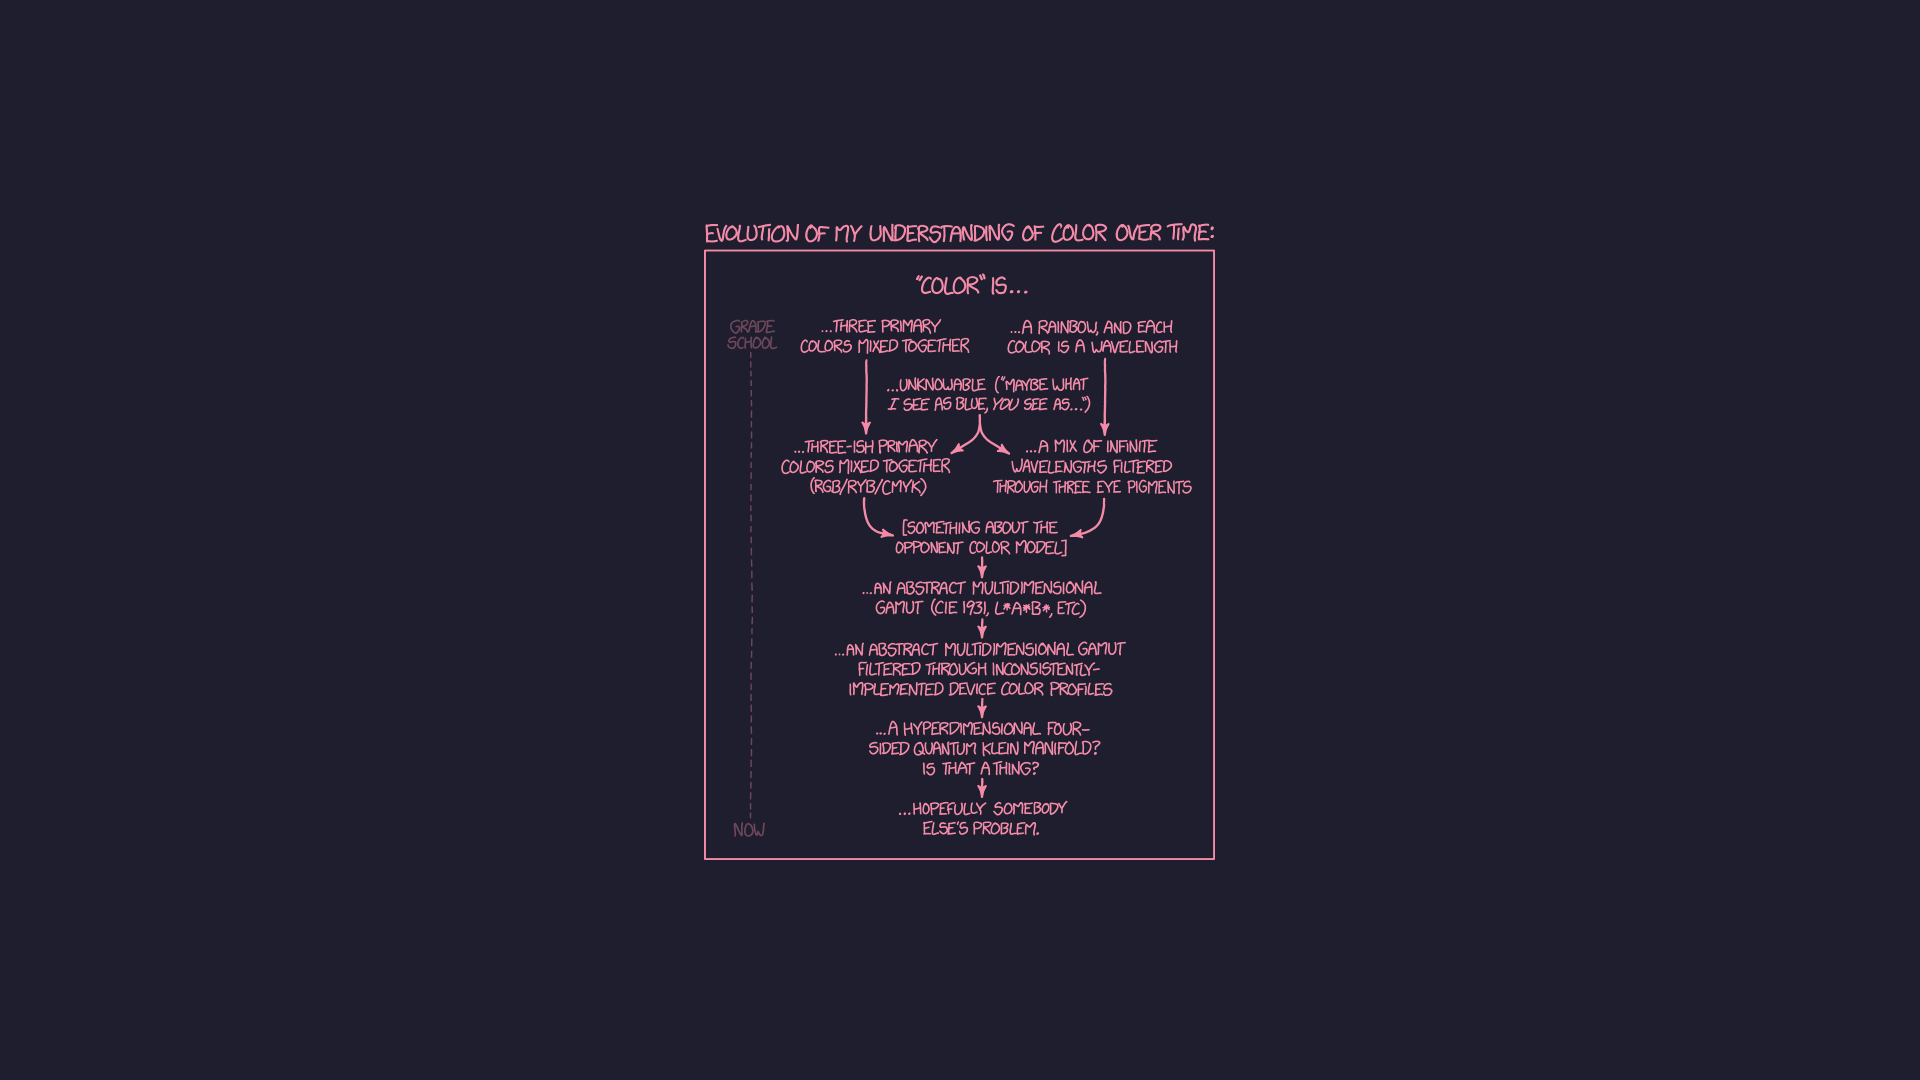 EVOLUTION OF MY UNDERSTANDING OF COLOR OVER TIME:
"COLOR" IS...
GRADE
SCHOOL
...THREE PRIMARY
COLORS MIXED TOGETHER
...A RAINBOW, AND EACH
COLOR IS A WAVELENGTH
...UNKNOWABLE ("MAYBE WHAT
I SEE AS BLUE, YOU SEE AS...")
...THREE-ISH PRIMARY
COLORS MIXED TOGETHER
(RGB/RYB/CMYK)
...A MIX OF INFINITE
WAVELENGTHS FILTERED
THROUGH THREE EYE PIGMENTS
[SOMETHING ABOUT THE
OPPONENT COLOR MODEL]
...AN ABSTRACT MULTIDIMENSIONAL
GAMUT (CIE 1931, L*A*B*, ETC)
...AN ABSTRACT MULTIDIMENSIONAL GAMUT
FILTERED THROUGH INCONSISTENTLY-
IMPLEMENTED DEVICE COLOR PROFILES
...A HYPERDIMENSIONAL FOUR-
SIDED QUANTUM KLEIN MANIFOLD?
IS THAT A THING?
...HOPEFULLY SOMEBODY
ELSE'S PROBLEM.
NOW